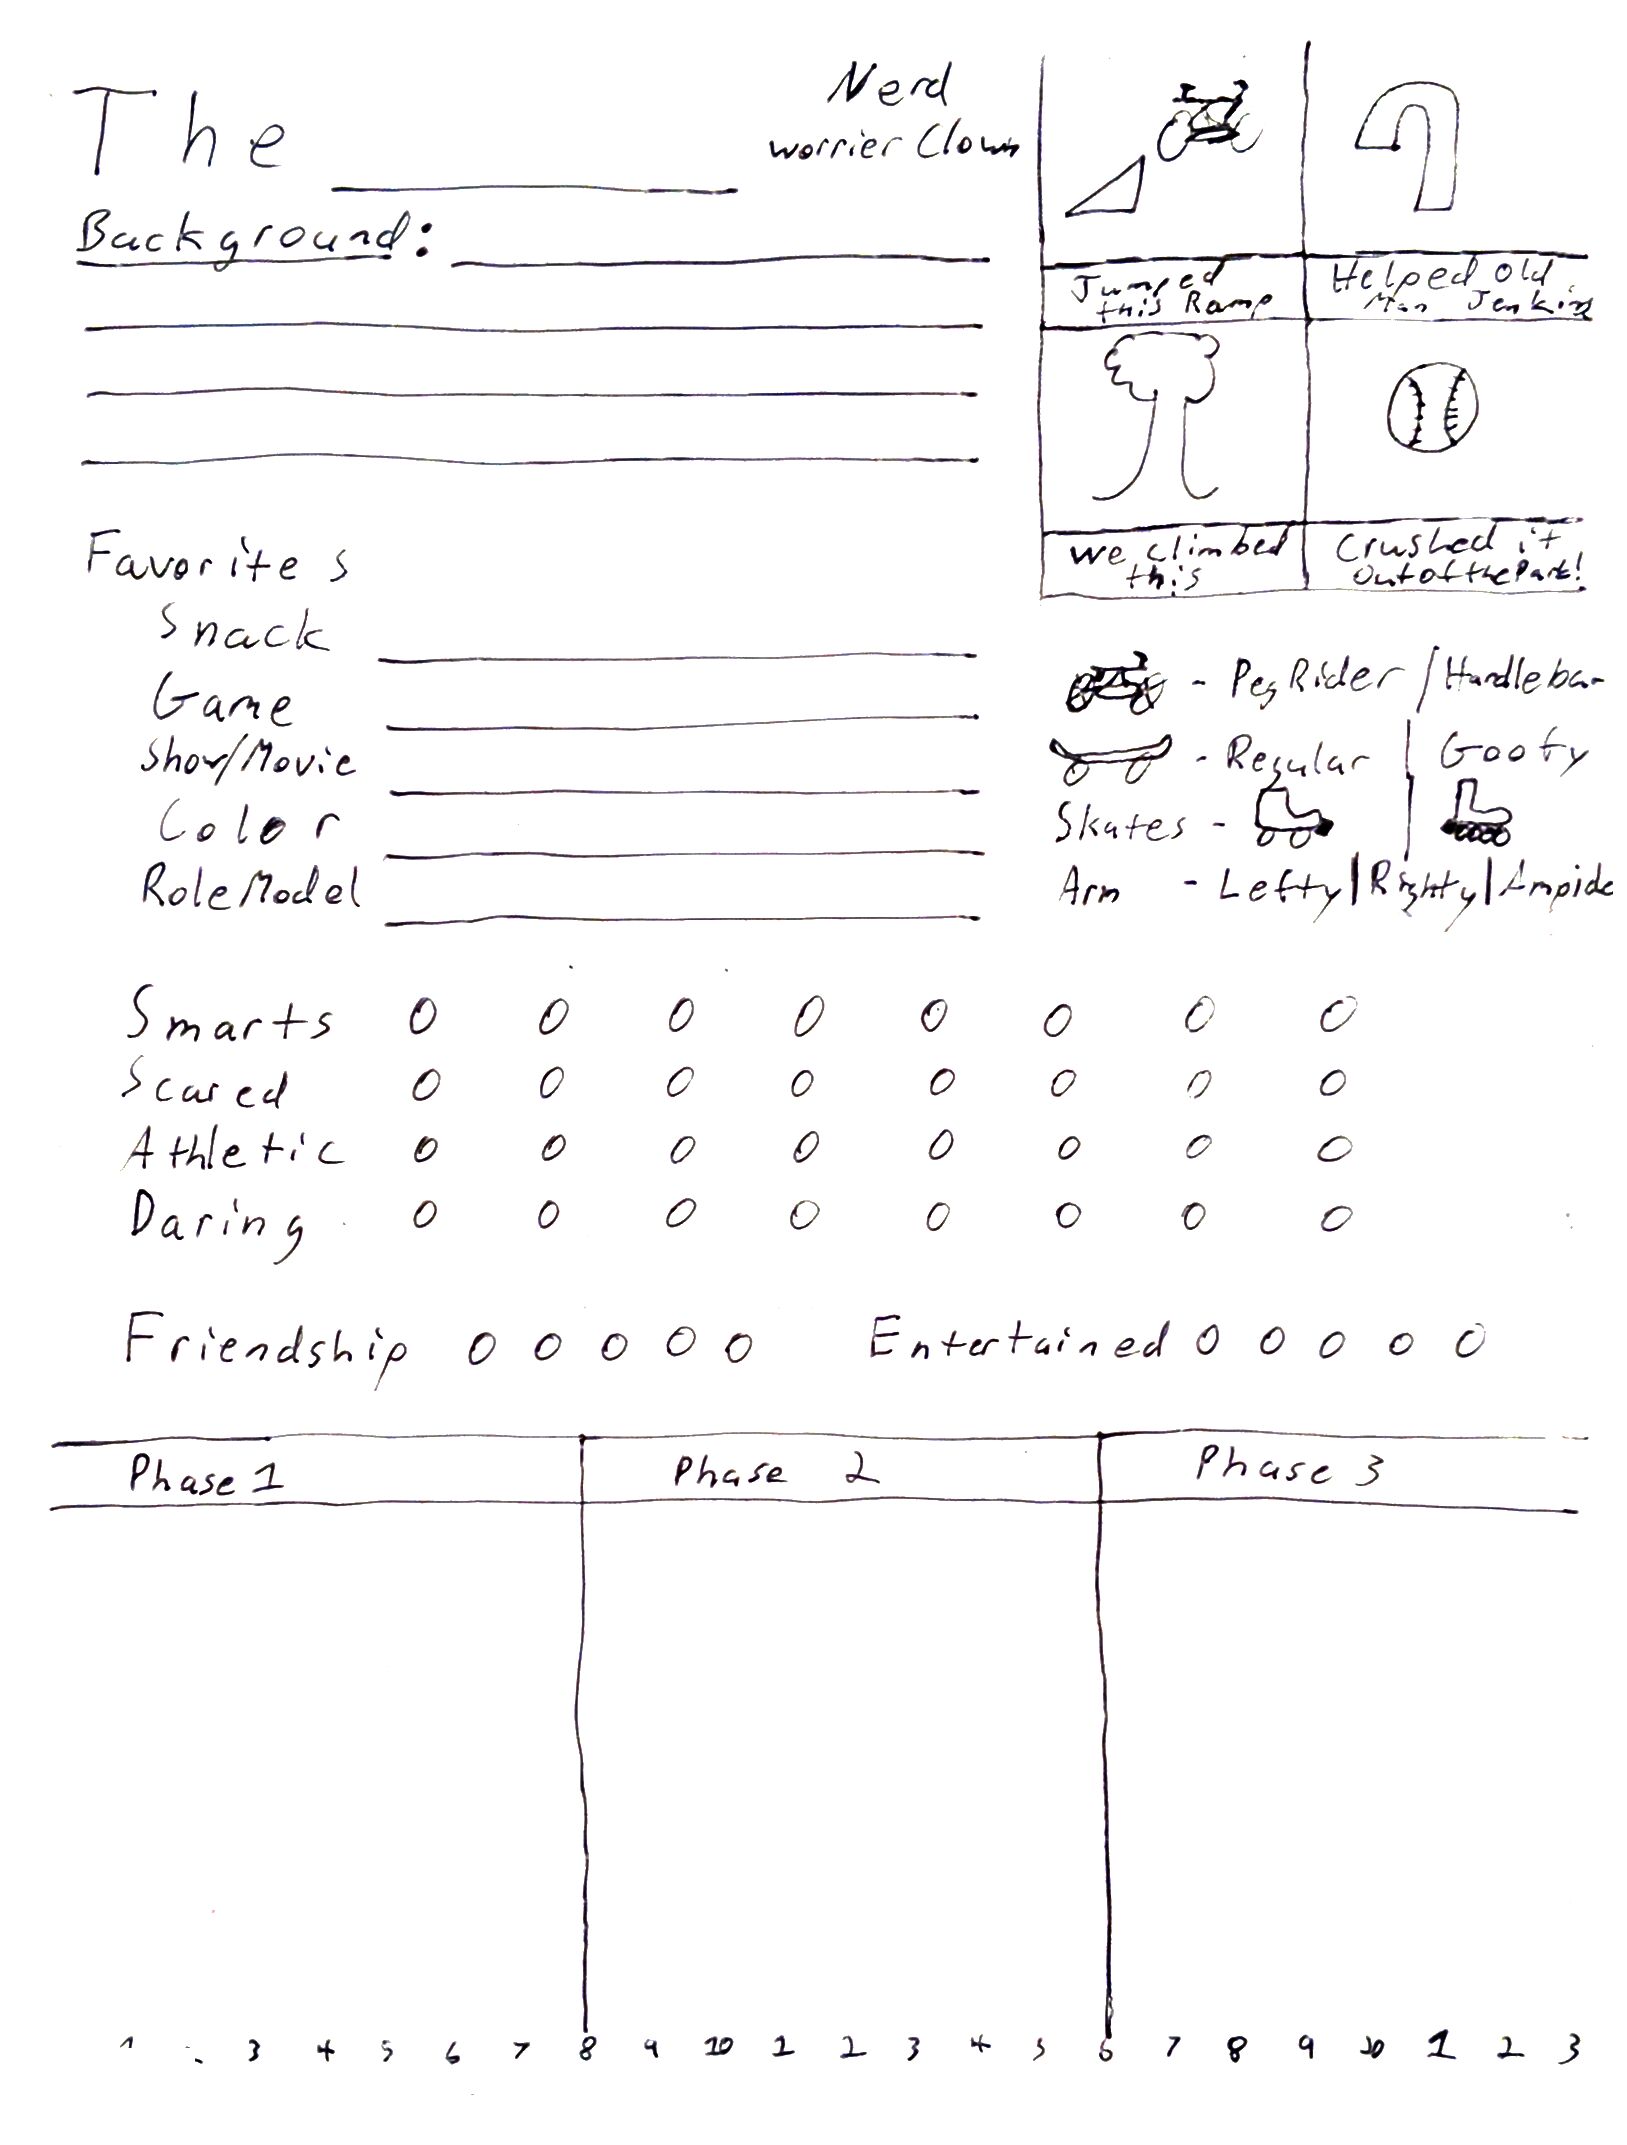 The
Nerd
worrier Clown
Background:
Jumped
this Ramp
Helped old
Man Jenkins
We climbed
this
Crushed it
Out of the Park!
Favorites
Snack
Game
Show/Movie
Color
RoleModel
- Peg Rider / Handlebar
- Regular | Goofy
Skates - |
Arm - Lefty | Righty | Ampide
Smarts O O O O O O O O
Scared O O O O O O O O
Athletic O O O O O O O O
Daring O O O O O O O O
Friendship O O O O O Entertained O O O O O
Phase 1 Phase 2 Phase 3
1 3 4 5 6 7 8 9 10 1 2 3 4 5 6 7 8 9 10 1 2 3